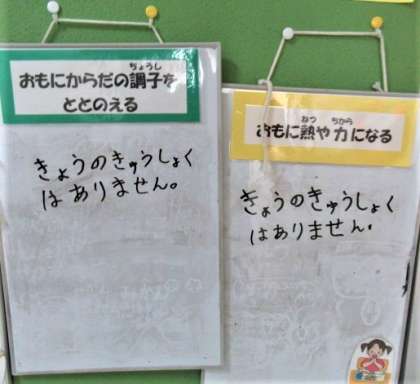 おもにからだの調子を
ととのえる
きょうのきゅうしょく
はありません。
おもに熱や力になる
きょうのきゅうしょく
はありません.